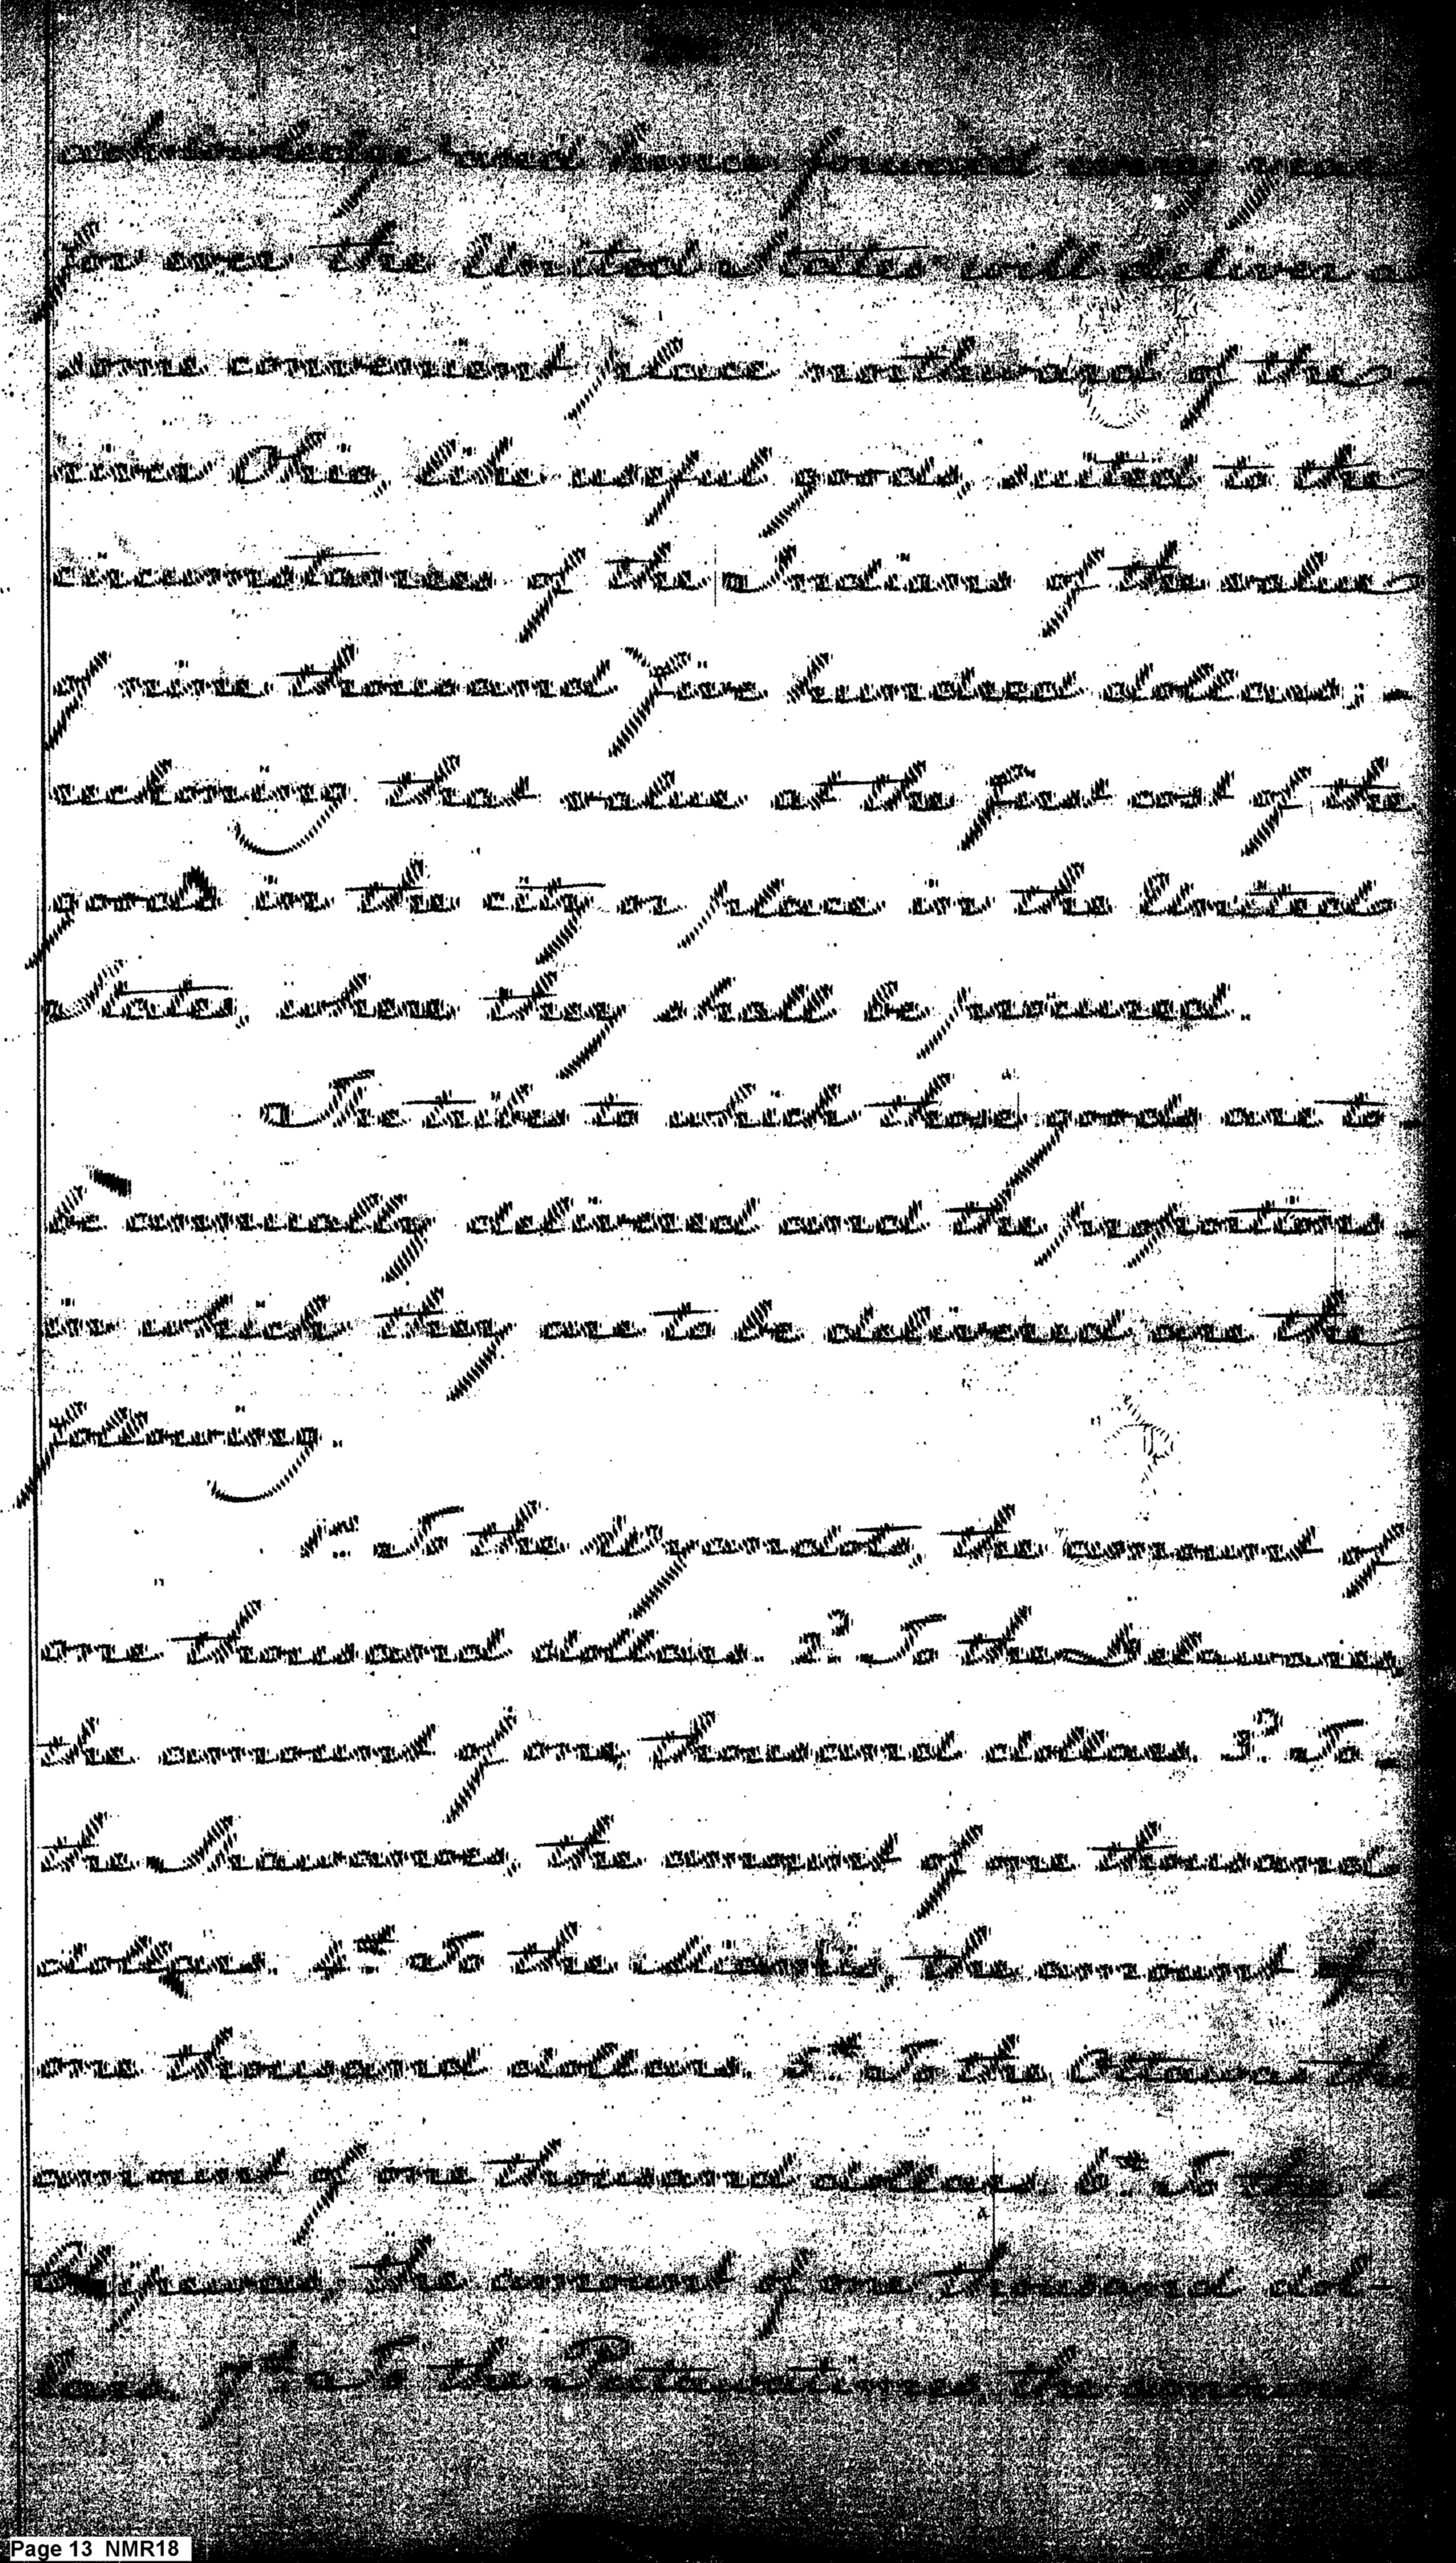 acknowledge and hence forward every year
for ever the United States will deliver at
some convenient place northward of the
river Ohio, like useful goods, suited to the
circumstances of the Indians of the value
of nine thousand five hundred dollars; -
reckoning that value at the first cost of the
goods in the city or place in the United
States, where they shall be procured.
The tribes to which those goods are to
be annually delivered and the proportions
in which they are to be delivered are the
following.
1st To the Wyandots, the amount of
one thousand dollars. 2d To the Delawares,
the amount of one thousand dollars. 3d To
the Shawanoes, the amount of one thousand
dollars. 4th To the Miamis, the amount of
one thousand dollars. 5th To the Ottawas the
amount of one thousand dollars. 6th To the
Chippewas, the amount of one thousand dol-
lars. 7th To the Putawatimes, the amount
Page 13 NMR18